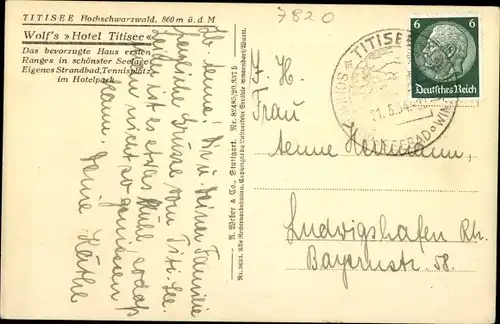 TITISEE Hochschwarzwald, 860 m ü. d. M
Wolf's »Hotel Titisee«
Das bevorzugte Haus ersten
Ranges in schönster Seelage
Eigenes Strandbad, Tennisplatz
im Hotelpark
7820
Lb. Aenne! Dir u. Deiner Familie
herzliche Grüsse vom Titi-See.
Leider ist es etwas kühl sodaß
man nicht so geniessen
kann. Deine Käthe
A. Weber & Co., Stuttgart. Nr. 82485/20.
TITISEE
21.5.34
6 6
Deutsches Reich
Frau
Aenne Hermann,
Ludwigshafen Rh.
Bayernstr. 58.